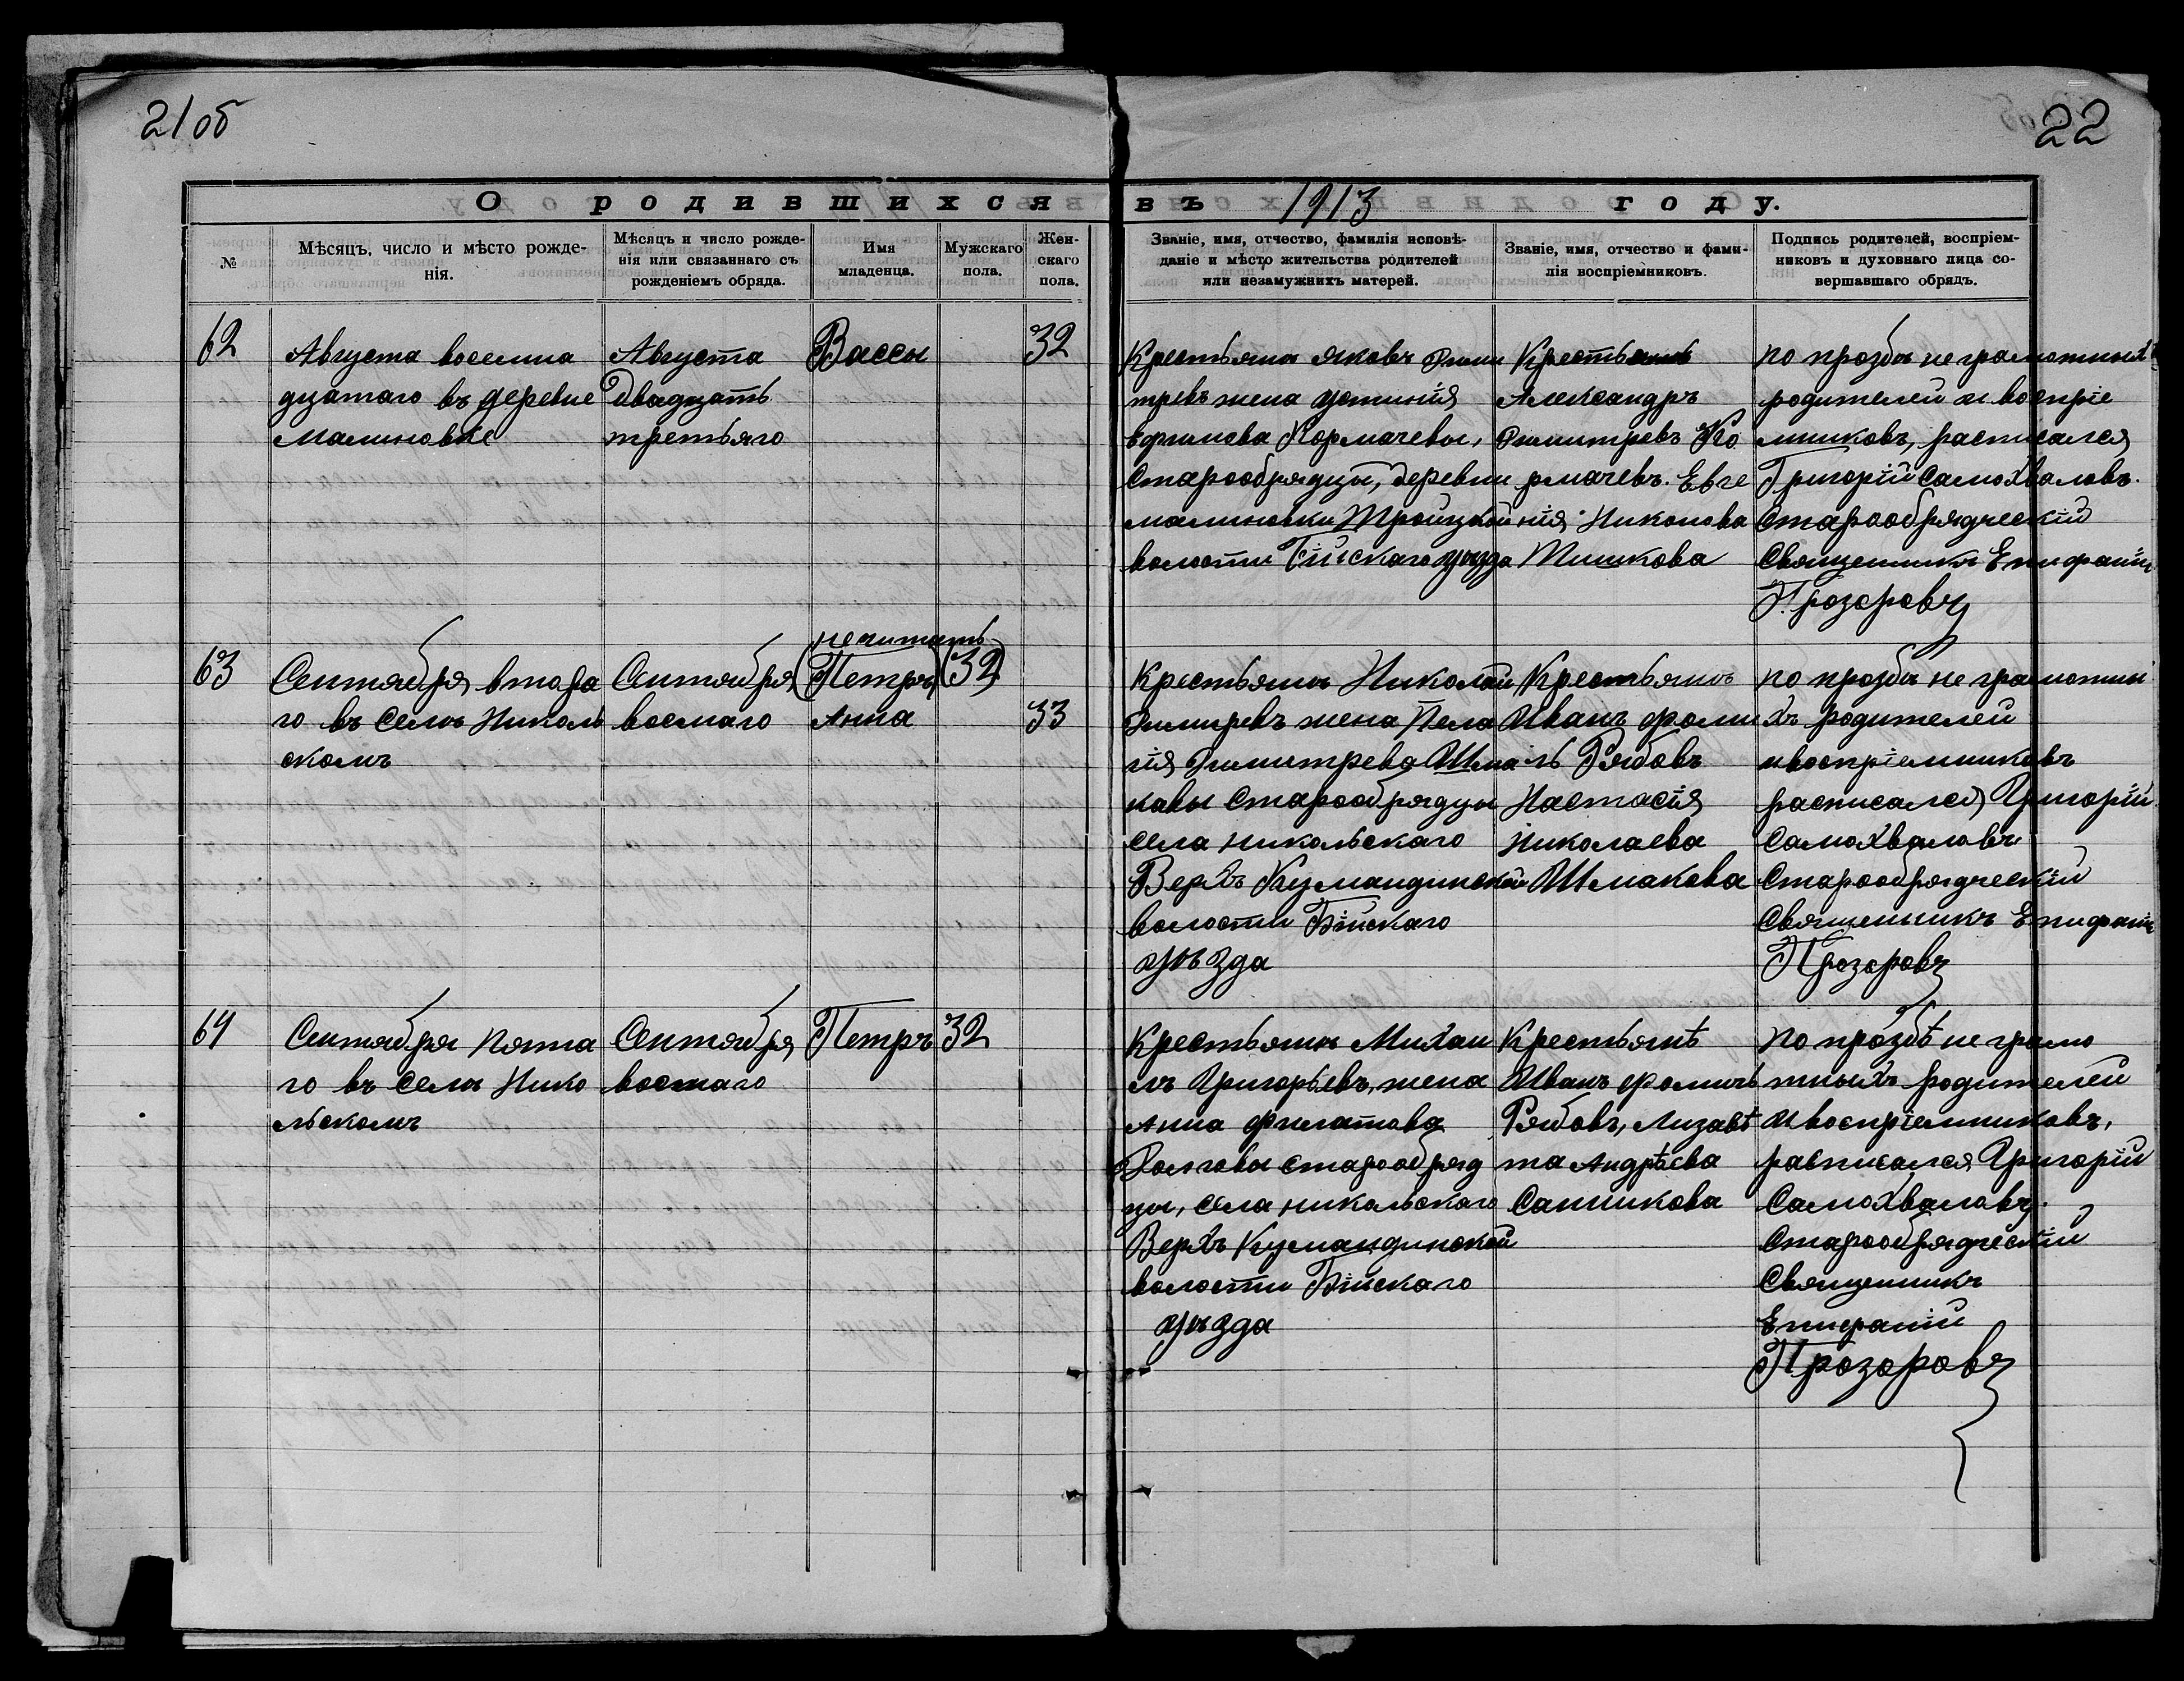 21об
22
О родившихся въ 1913 году.
№
Мѣсяцъ, число и мѣсто рожде-
нія.
Мѣсяцъ и число рожде-
нія или связаннаго съ
рожденіемъ обряда.
Имя
младенца.
Мужскаго
пола.
Жен-
скаго
пола.
Званіе, имя, отчество, фамилія исповѣ-
даніе и мѣсто жительства родителей
или незамужнихъ матерей.
Званіе, имя, отчество и фами-
лія воспріемниковъ.
Подпись родителей, воспріем-
никовъ и духовнаго лица со-
вершавшаго обрядъ.
62
Августа восемна
дцатаго въ деревне
Малиновке
Августа
Двадцать
третьяго
Вассы
32
Крестьянин Яковъ Дими
тревъ жена устинія
ефимова Кормачевы,
Старообрядцы, деревни
малиновки Троицкой
волости Бійскаго уѣзда
Крестьянинъ
Александръ
Димитревъ Ко
рмачевъ. Евге
нія Никонова
Тишкова
по прозбѣ не грамотных
родителей и воспріе
мниковъ, расписался
Григорій Самохваловъ.
Старообрядческій
Священникъ Епифаній
Прозоровъ
63
Сентября втора
го въ Селѣ Николь
скомъ
Сентября
восмаго
не читать
(Петръ) (32)
Анна
33
Крестьянинъ Николай
Димиревъ жена Пела
гія Димитрева Шма
кавы Старообрядцы
села никольскаго
Верхъ Кумандинской
волости Бійскаго
уѣзда
Крестьянинъ
Иванъ фоми
чъ Рябовъ
Настасія
Николаева
Шмакова
по прозбѣ не грамотны
хъ родителей
и воспріемниковъ
расписался Григорій
Самохваловъ
Старообрядческій
Священникъ Епифаній
Прозоровъ
64
Сентября Пятта
го въ Селѣ Нико
льскомъ
Сентября
восмаго
Петръ
32
Крестьянинъ Михаи
лъ Григорьевъ, жена
Анна филатова
Долговы старообряд
цы, села никольскаго
Верхъ Кумандинской
волости Бійскаго
уѣзда
Крестьянинѣ
Иванъ фомичъ
Рябовъ, Лизавѣ
та Андрѣева
Санникова
По прозбѣ не грамо
тныхъ родителей
и воспріемниковъ,
расписался Григорій
Самохваловъ.
Старообрядческій
Священникъ
Епифаній
Прозоровъ